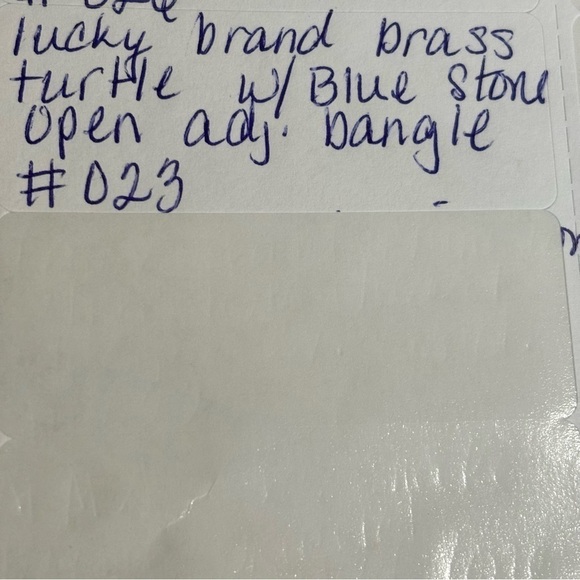 lucky brand brass
turtle w/ Blue Stone
Open adj. bangle
#023